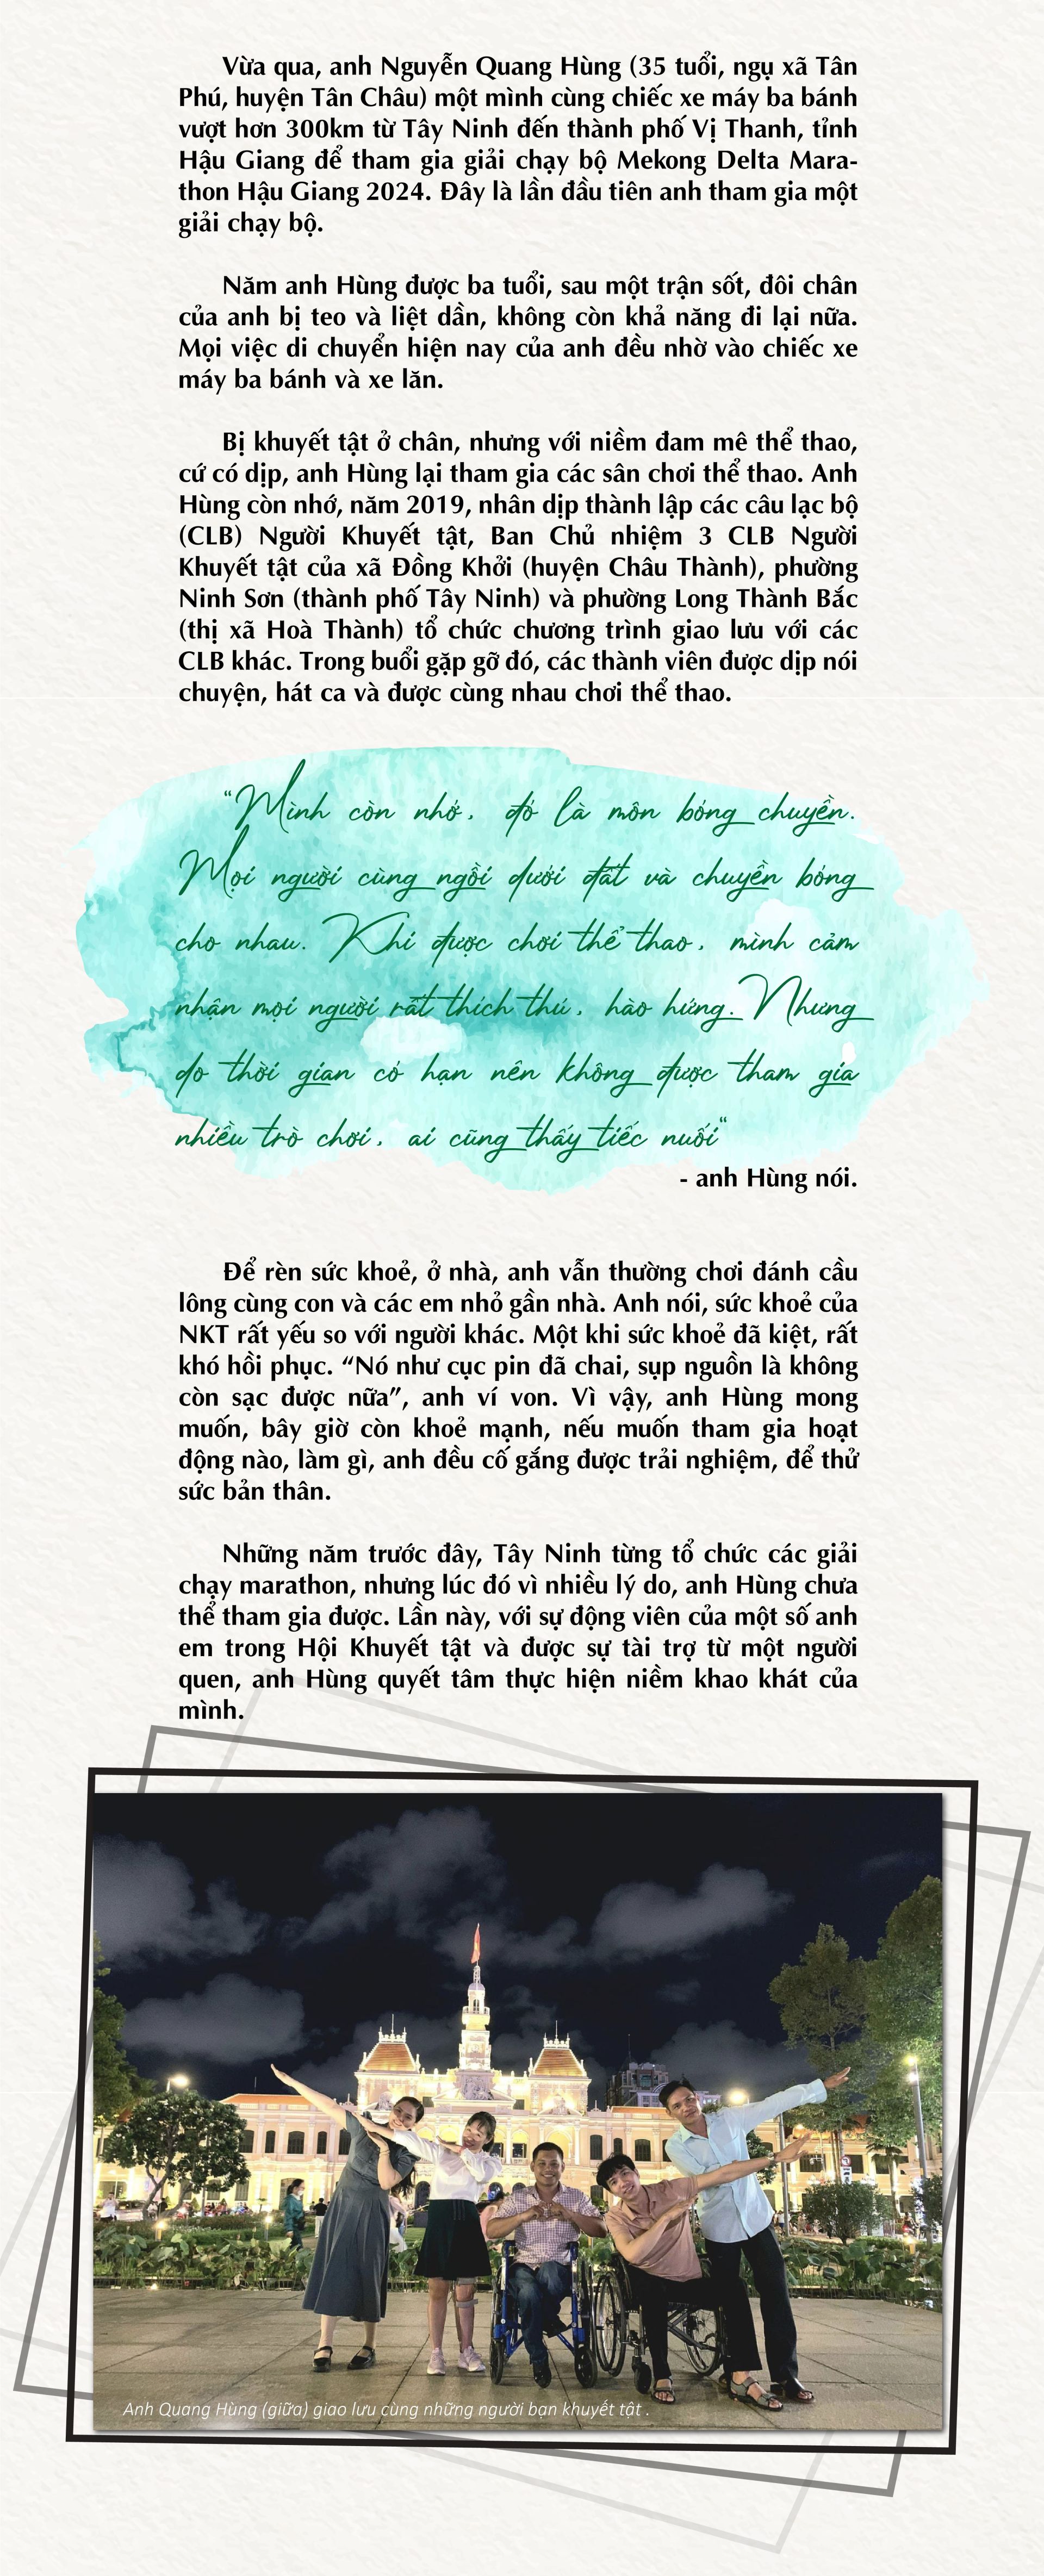 Vừa qua, anh Nguyễn Quang Hùng (35 tuổi, ngụ xã Tân
Phú, huyện Tân Châu) một mình cùng chiếc xe máy ba bánh
vượt hơn 300km từ Tây Ninh đến thành phố Vị Thanh, tỉnh
Hậu Giang để tham gia giải chạy bộ Mekong Delta Mara-
thon Hậu Giang 2024. Đây là lần đầu tiên anh tham gia một
giải chạy bộ.
Năm anh Hùng được ba tuổi, sau một trận sốt, đôi chân
của anh bị teo và liệt dần, không còn khả năng đi lại nữa.
Mọi việc di chuyển hiện nay của anh đều nhờ vào chiếc xe
máy ba bánh và xe lăn.
Bị khuyết tật ở chân, nhưng với niềm đam mê thể thao,
cứ có dịp, anh Hùng lại tham gia các sân chơi thể thao. Anh
Hùng còn nhớ, năm 2019, nhân dịp thành lập các câu lạc bộ
(CLB) Người Khuyết tật, Ban Chủ nhiệm 3 CLB Người
Khuyết tật của xã Đồng Khởi (huyện Châu Thành), phường
Ninh Sơn (thành phố Tây Ninh) và phường Long Thành Bắc
(thị xã Hoà Thành) tổ chức chương trình giao lưu với các
CLB khác. Trong buổi gặp gỡ đó, các thành viên được dịp nói
chuyện, hát ca và được cùng nhau chơi thể thao.
“Mình còn nhớ, đó là môn bóng chuyền.
Mọi người cùng ngồi dưới đất và chuyền bóng
cho nhau. Khi được chơi thể thao, mình cảm
nhận mọi người rất thích thú, hào hứng. Nhưng
do thời gian có hạn nên không được tham gia
nhiều trò chơi, ai cũng thấy tiếc nuối“
- anh Hùng nói.
Để rèn sức khoẻ, ở nhà, anh vẫn thường chơi đánh cầu
lông cùng con và các em nhỏ gần nhà. Anh nói, sức khoẻ của
NKT rất yếu so với người khác. Một khi sức khoẻ đã kiệt, rất
khó hồi phục. “Nó như cục pin đã chai, sụp nguồn là không
còn sạc được nữa”, anh ví von. Vì vậy, anh Hùng mong
muốn, bây giờ còn khoẻ mạnh, nếu muốn tham gia hoạt
động nào, làm gì, anh đều cố gắng được trải nghiệm, để thử
sức bản thân.
Những năm trước đây, Tây Ninh từng tổ chức các giải
chạy marathon, nhưng lúc đó vì nhiều lý do, anh Hùng chưa
thể tham gia được. Lần này, với sự động viên của một số anh
em trong Hội Khuyết tật và được sự tài trợ từ một người
quen, anh Hùng quyết tâm thực hiện niềm khao khát của
mình.
Anh Quang Hùng (giữa) giao lưu cùng những người bạn khuyết tật .